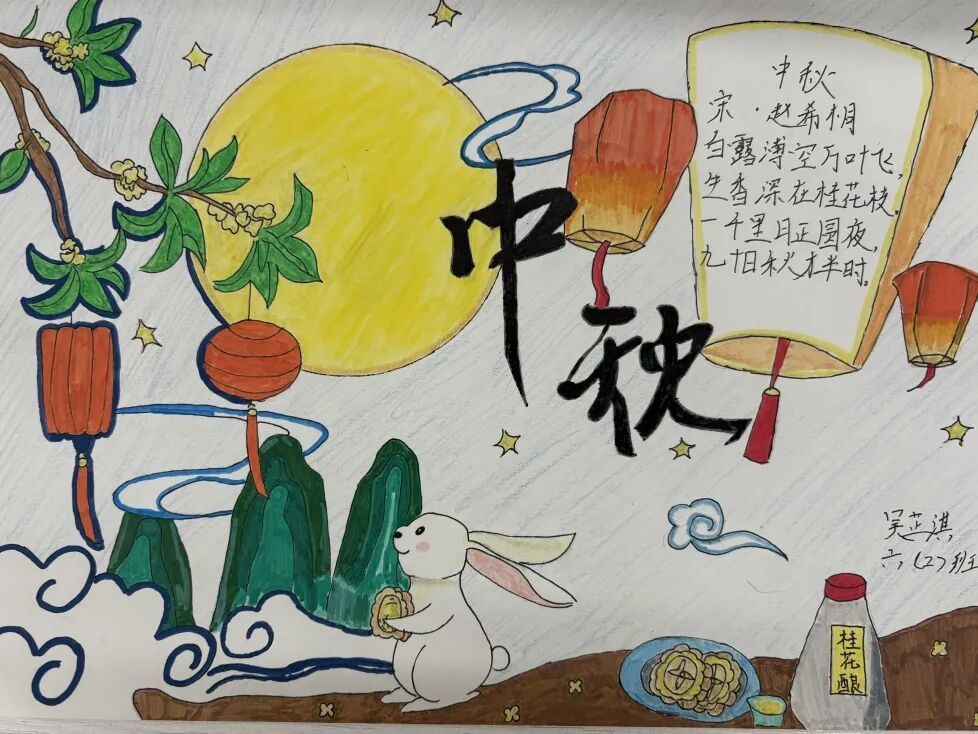 中秋
宋·赵希
白露溥空万叶飞,
生香深在桂花枝.
一千里日正圆夜,
九十日秋才半时。
中
秋
吴芷淇
六(2)班
桂花酿